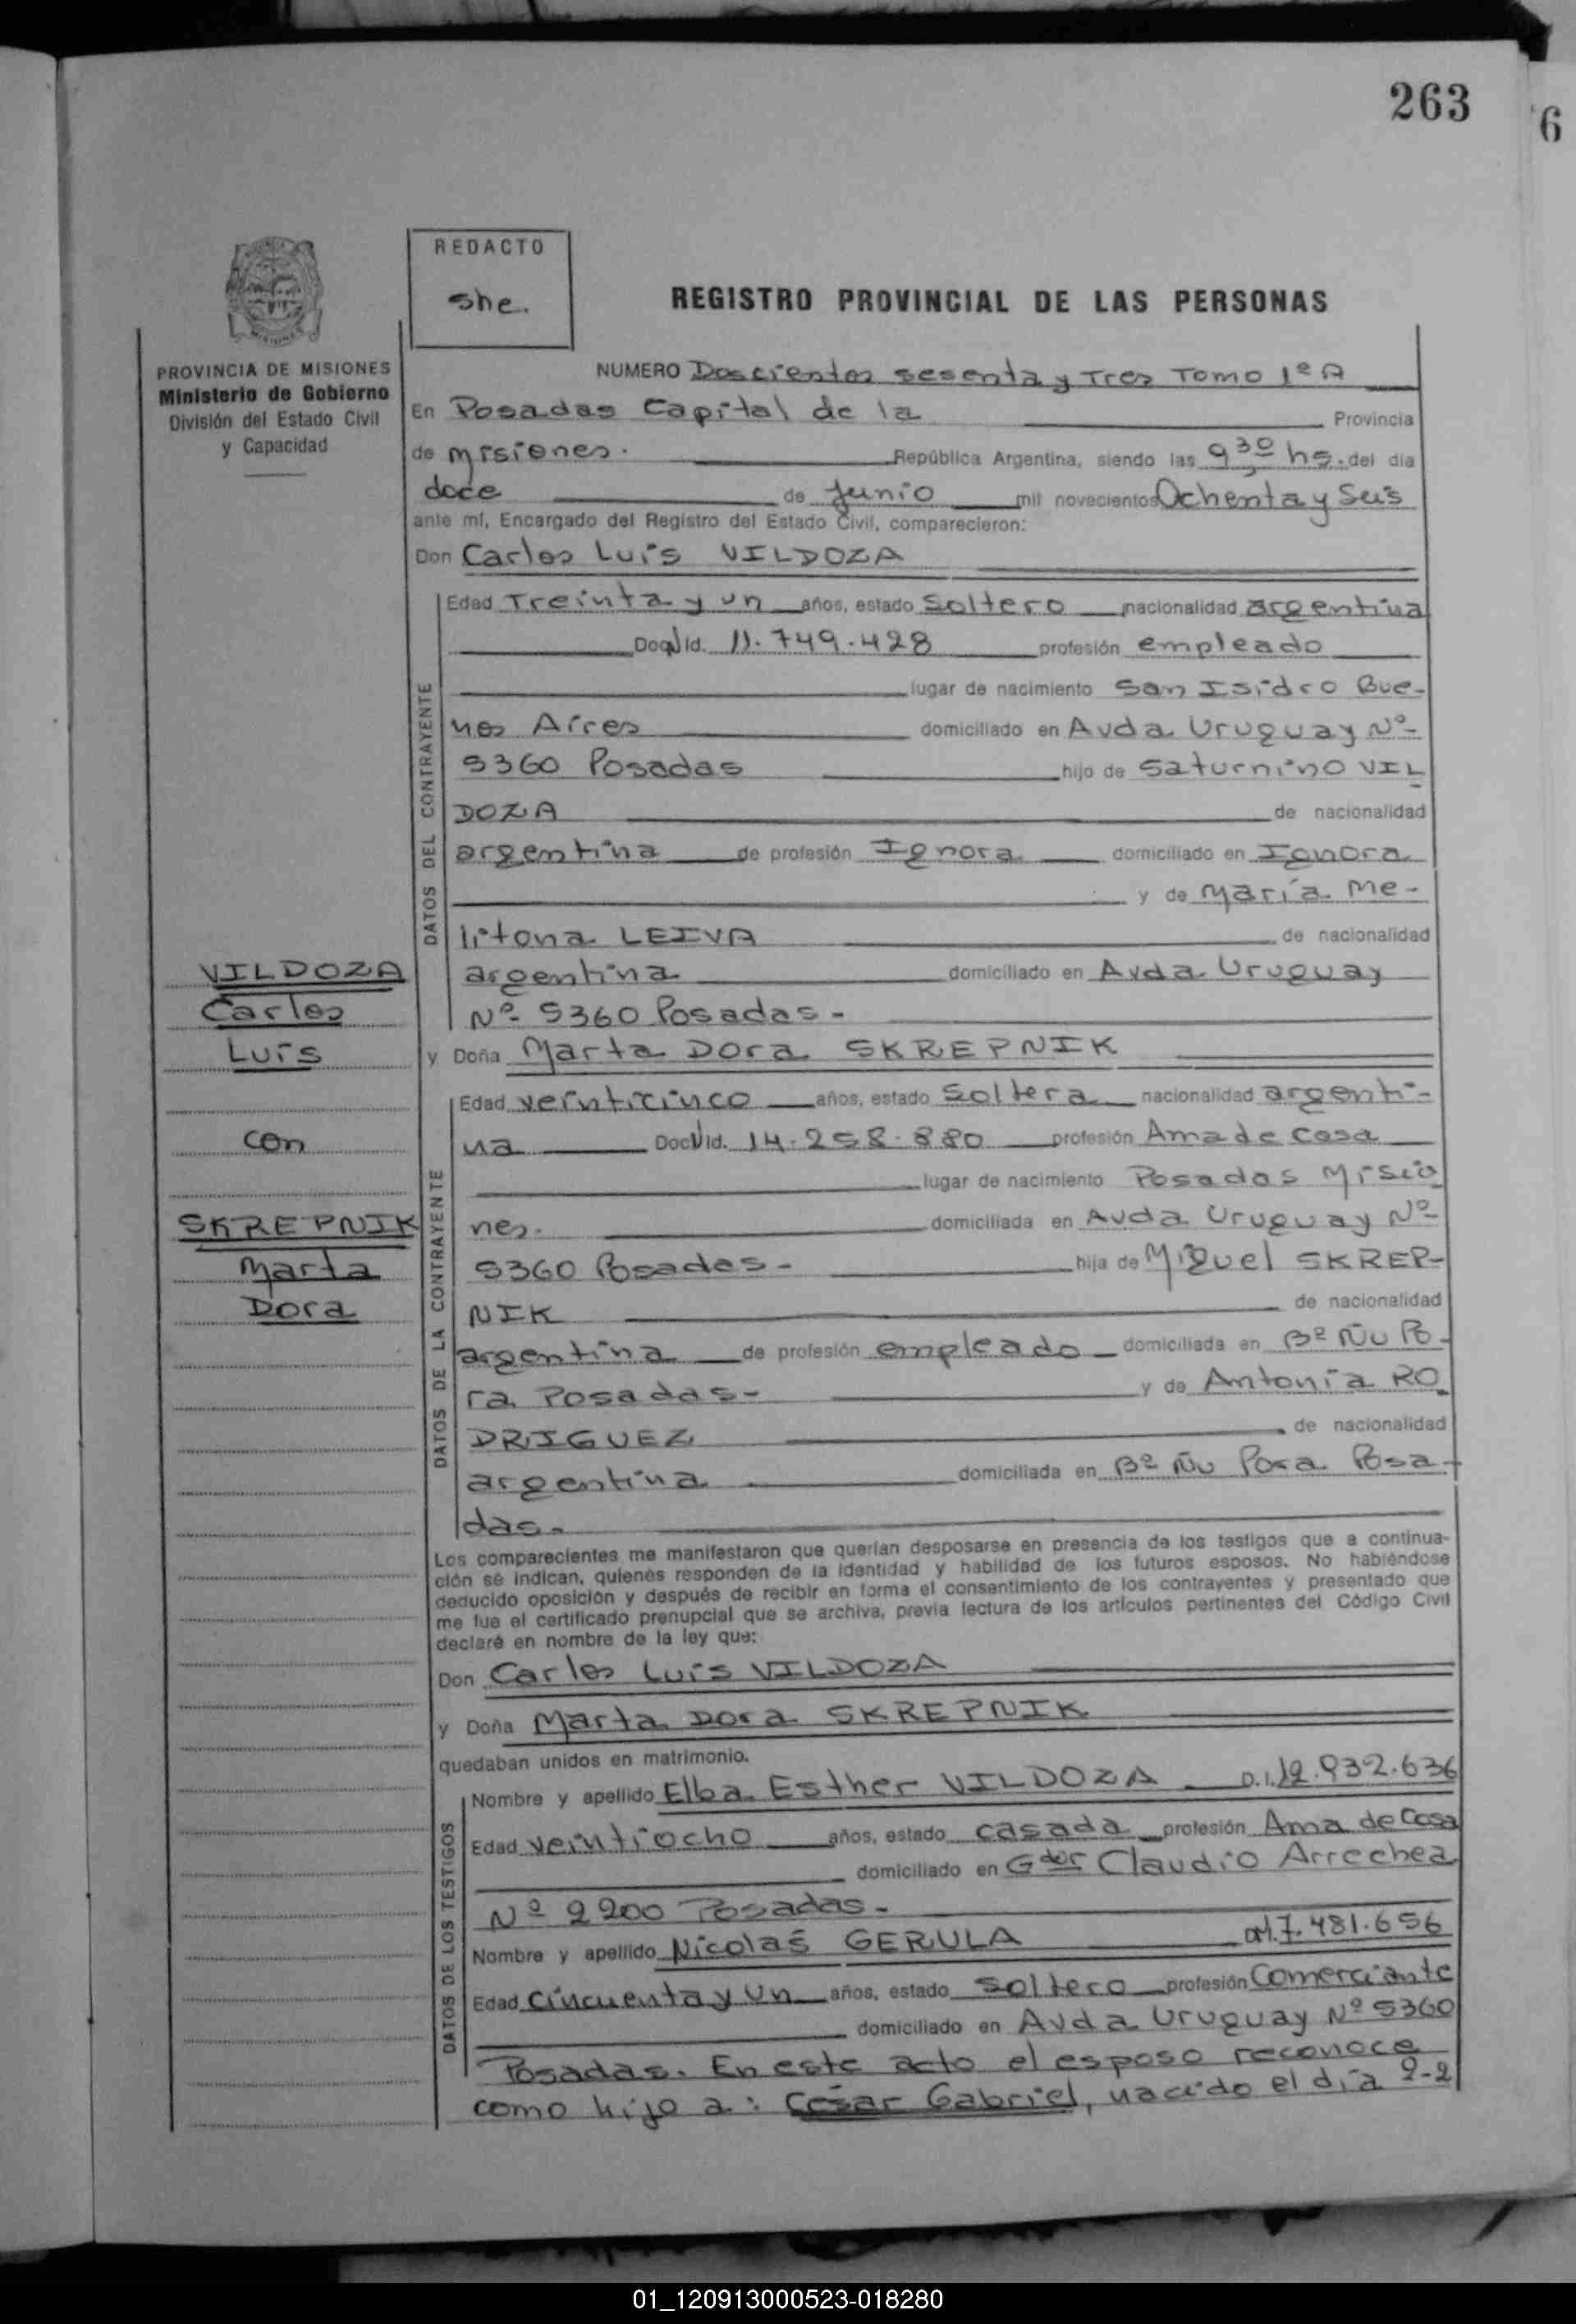 263
6
REDACTO
she.
REGISTRO PROVINCIAL DE LAS PERSONAS
PROVINCIA DE MISIONES
Ministerio de Gobierno
División del Estado Civil
y Capacidad
NUMERO Doscientos sesenta y Tres Tomo 1º A
En Posadas Capital de la Provincia
de Misiones. República Argentina, siendo las 9,30 hs. del dia
doce de Junio mil novecientos Ochenta y Seis
ante mí, Encargado del Registro del Estado Civil, comparecieron:
Don Carlos Luis VILDOZA
DATOS DEL CONTRAYENTE
Edad Treinta y un años, estado Soltero nacionalidad argentina
Doc N Id. 11.749.428 profesión empleado
lugar de nacimiento San Isidro Bue-
nos Aires domiciliado en Avda Uruguay Nº
5360 Posadas hijo de Saturnino VIL
DOZA de nacionalidad
argentina de profesión Ignora domiciliado en Ignora
y de María Me-
litona LEIVA de nacionalidad
argentina domiciliado en Avda Uruguay
Nº 5360 Posadas-
VILDOZA
Carlos
Luis
con
SKREPNIK
Marta
Dora
y Doña Marta Dora SKREPNIK
DATOS DE LA CONTRAYENTE
Edad veinticinco años, estado Soltera nacionalidad argenti-
na Doc N Id. 14.258.880 profesión Ama de casa
lugar de nacimiento Posadas Misio
nes. domiciliada en Avda Uruguay Nº
5360 Posadas- hija de Miguel SKREP-
NIK de nacionalidad
argentina de profesión empleado domiciliada en Bº Ñu Po-
ra Posadas- y de Antonia RO
DRIGUEZ de nacionalidad
argentina domiciliada en Bº Ñu Pora Posa-
das-
Los comparecientes me manifestaron que querían desposarse en presencia de los testigos que a continua-
ción se indican, quienes responden de la identidad y habilidad de los futuros esposos. No habiéndose
deducido oposición y después de recibir en forma el consentimiento de los contrayentes y presentado que
me fue el certificado prenupcial que se archiva, previa lectura de los artículos pertinentes del Código Civil
declaré en nombre de la ley que:
Don Carlos Luis VILDOZA
y Doña Marta Dora SKREPNIK
quedaban unidos en matrimonio.
DATOS DE LOS TESTIGOS
Nombre y apellido Elba Esther VILDOZA D.I. 12.932.636
Edad veintiocho años, estado casada profesión Ama de Casa
domiciliado en Gdor Claudio Arrechea
Nº 2200 Posadas-
Nombre y apellido Nicolás GERULA 7.481.656
Edad cincuenta y un años, estado soltero profesión Comerciante
domiciliado en Avda Uruguay Nº 5360
Posadas. En este acto el esposo reconoce
como hijo a: César Gabriel, nacido el día 2-2
01_120913000523-018280